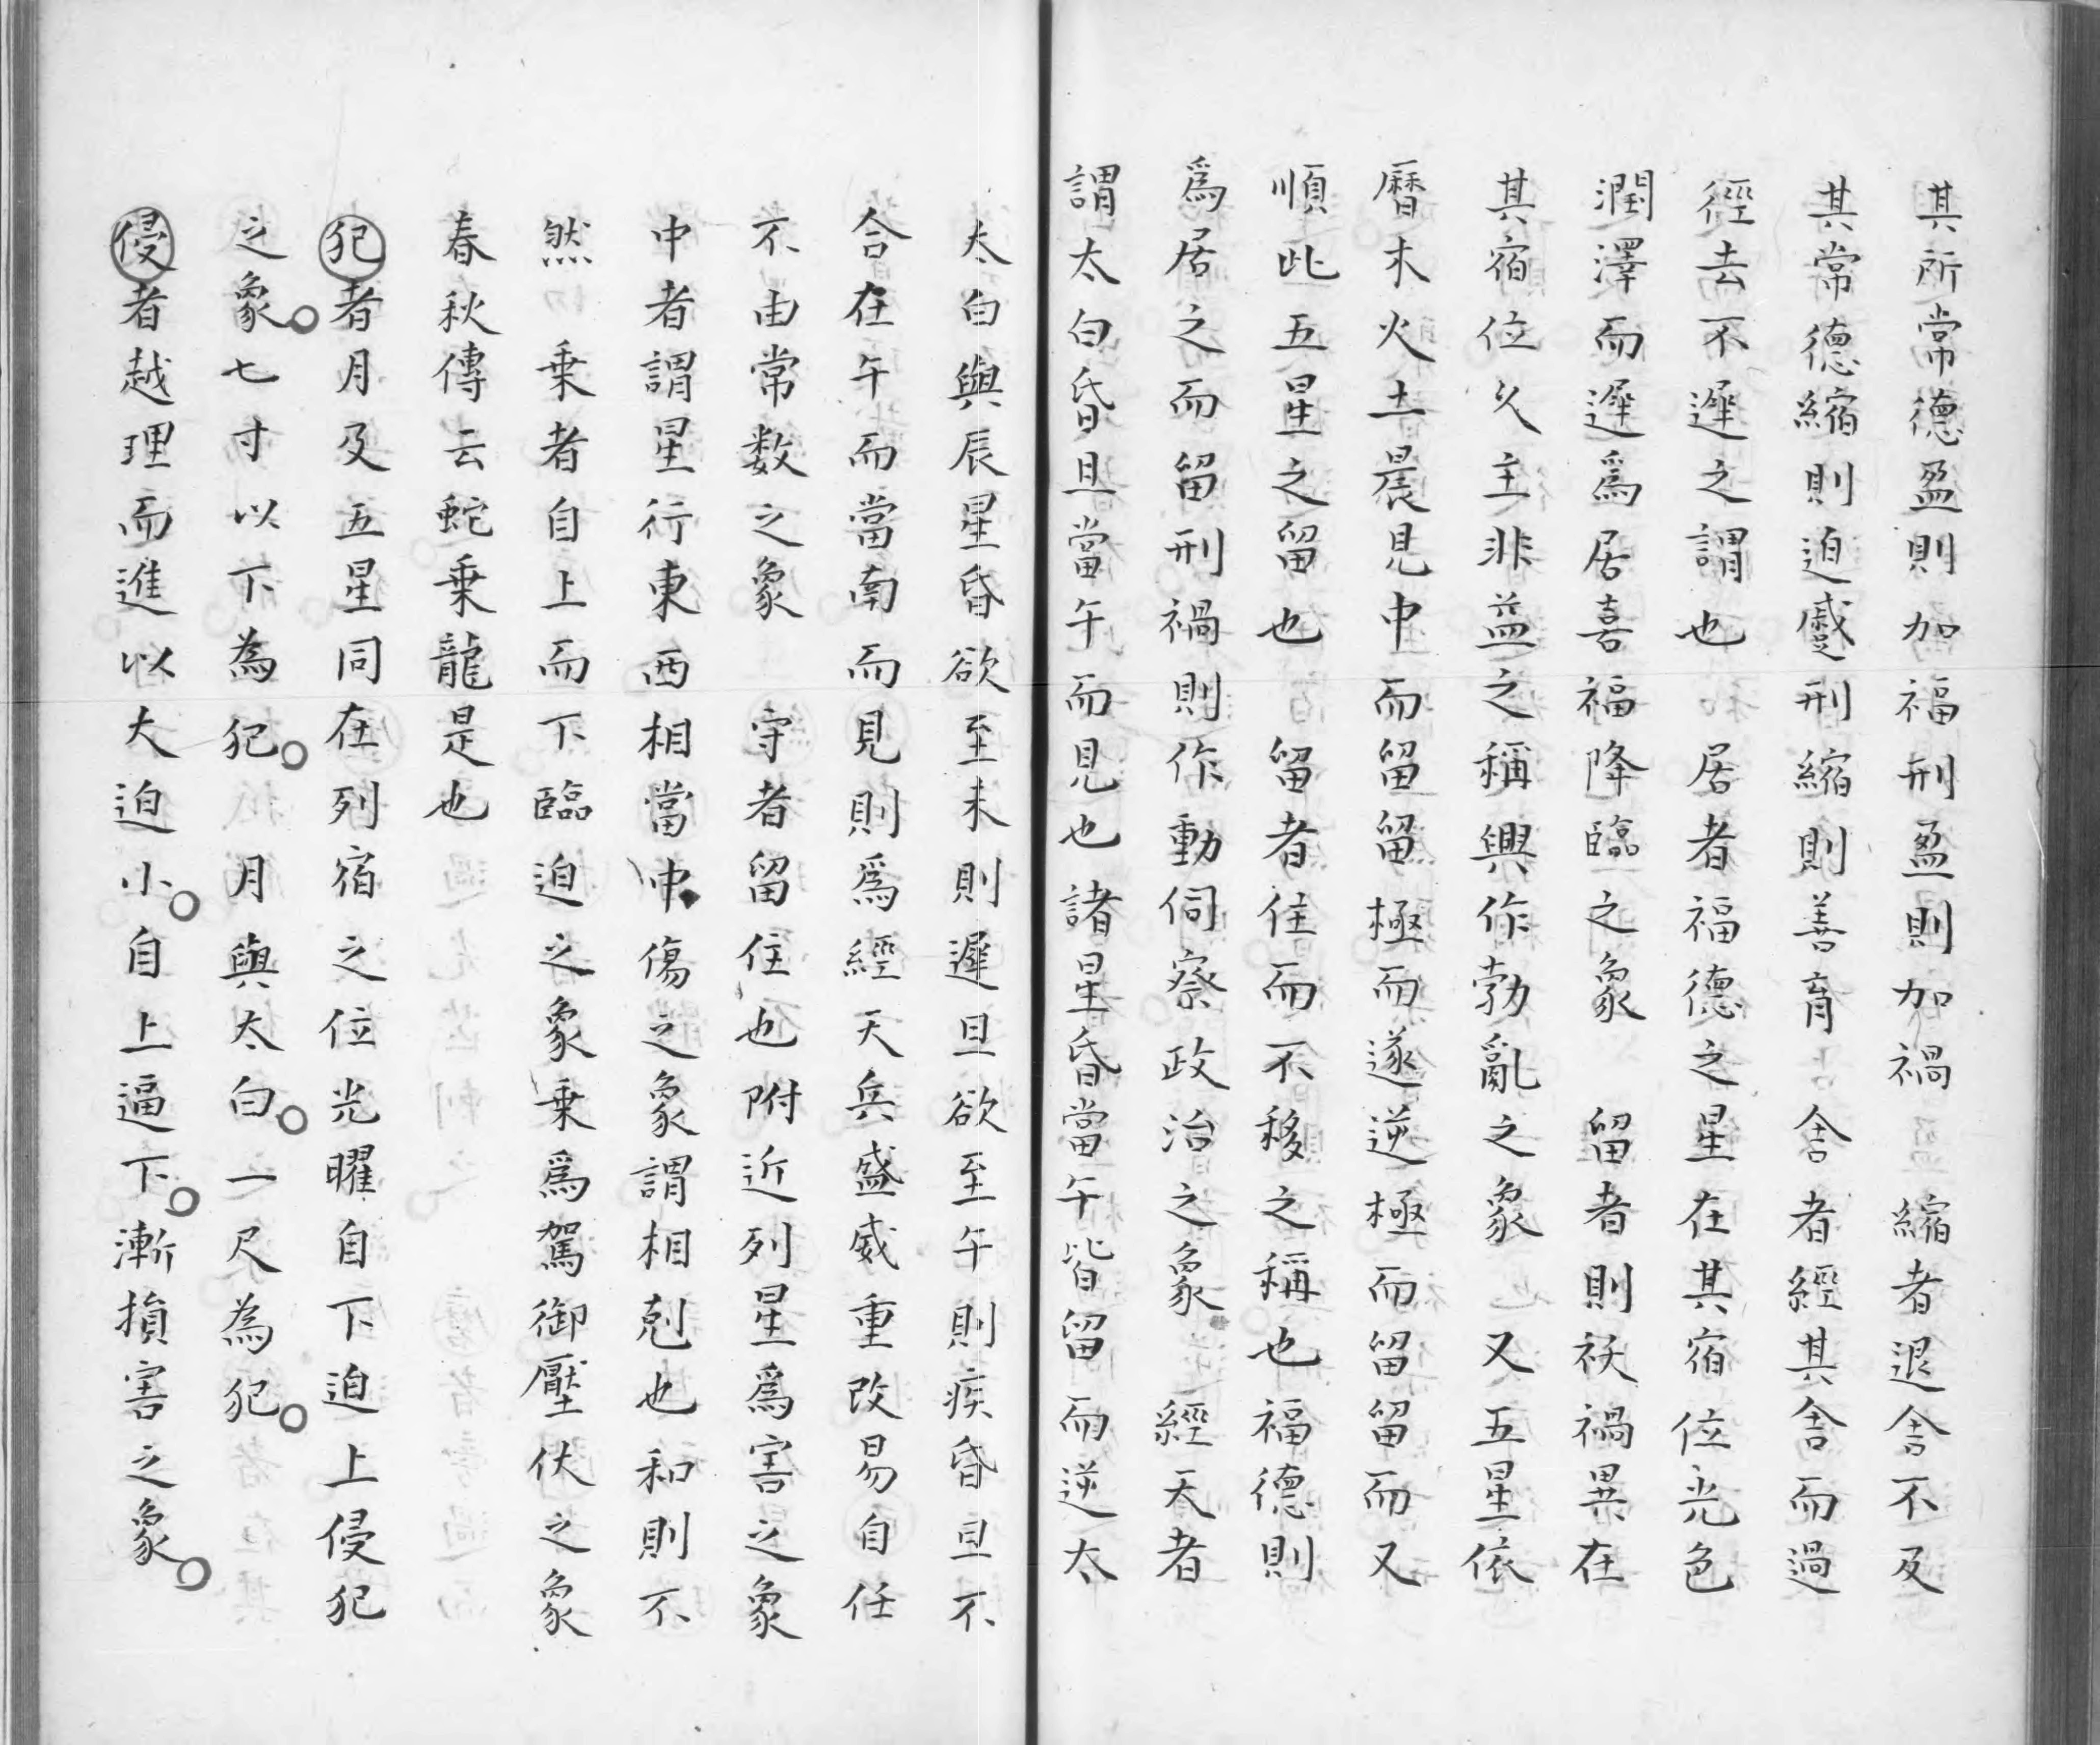 其所常德盈則加福刑盈則加禍　縮者退舍不及
其常德縮則迫蹙刑縮則善育　舍者經其舍而過
徑去不遲之謂也　居者福德之星在其宿位光色
潤澤而遲爲居喜福降臨之象　留者則祅禍異在
其宿位久主非益之稱興作勃亂之象　又五星依
曆木火土晨見中而留留極而遂逆極而留留而又
順此五星之留也　留者住而不移之稱也福德則
爲居之而留刑禍則作動伺察政治之象　經天者
謂太白昏旦當午而見也諸星昏當午皆留而逆太
太白與辰星昏欲至未則遲旦欲至午則疾昏旦不
合在午而當南而見則爲經天兵盛威重改易自任
不由常数之象　守者留住也附近列星爲害之象
中者謂星行東西相當中傷之象謂相剋也和則不
然　乗者自上而下臨迫之象乗爲駕御壓伏之象
春秋傳云蛇乗龍是也
犯者月及五星同在列宿之位光曜自下迫上侵犯
之象。七寸以下為犯。月與太白。一尺為犯。
侵者越理而進以大迫小。自上逼下。漸損害之象。